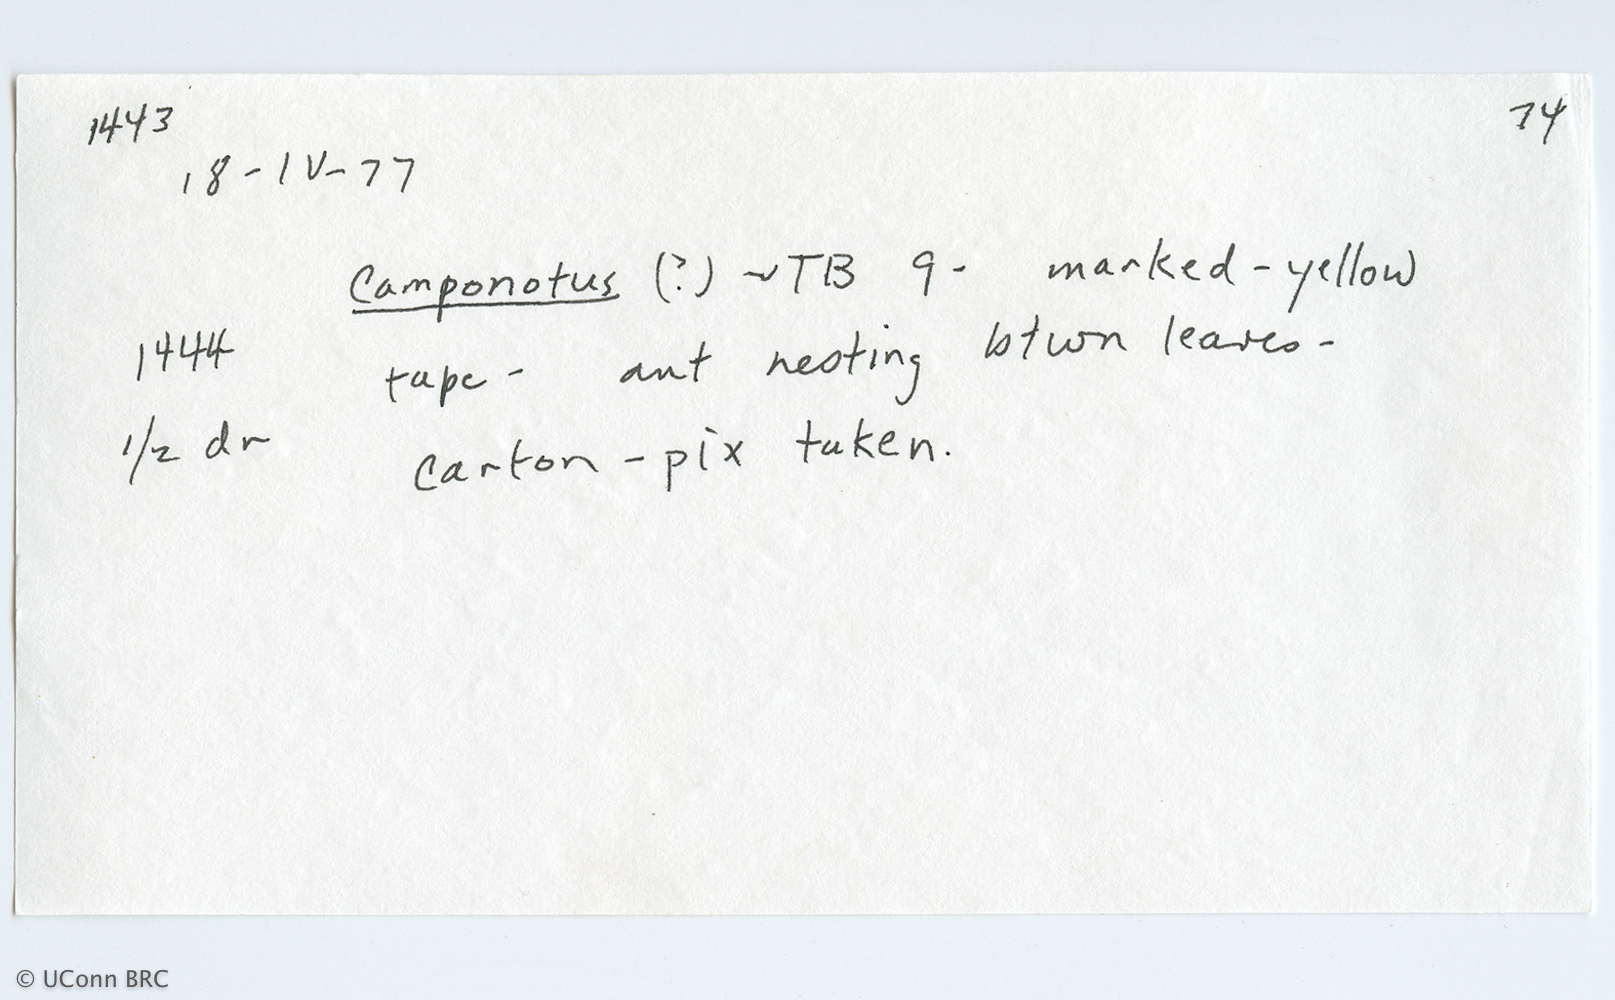 1443
74
18-IV-77
Camponotus (?) ~TB 9- marked-yellow
1444 tape- ant nesting btwn leaves-
1/2 dr carton-pix taken.
© UConn BRC